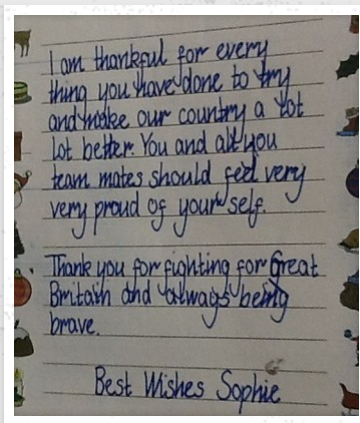 I am thankful for every
thing you have done to try
and make our country a lot
lot better. You and all you
team mates should feel very
very proud of your self.
Thank you for fighting for Great
Britain and always being
brave.
Best Wishes Sophie